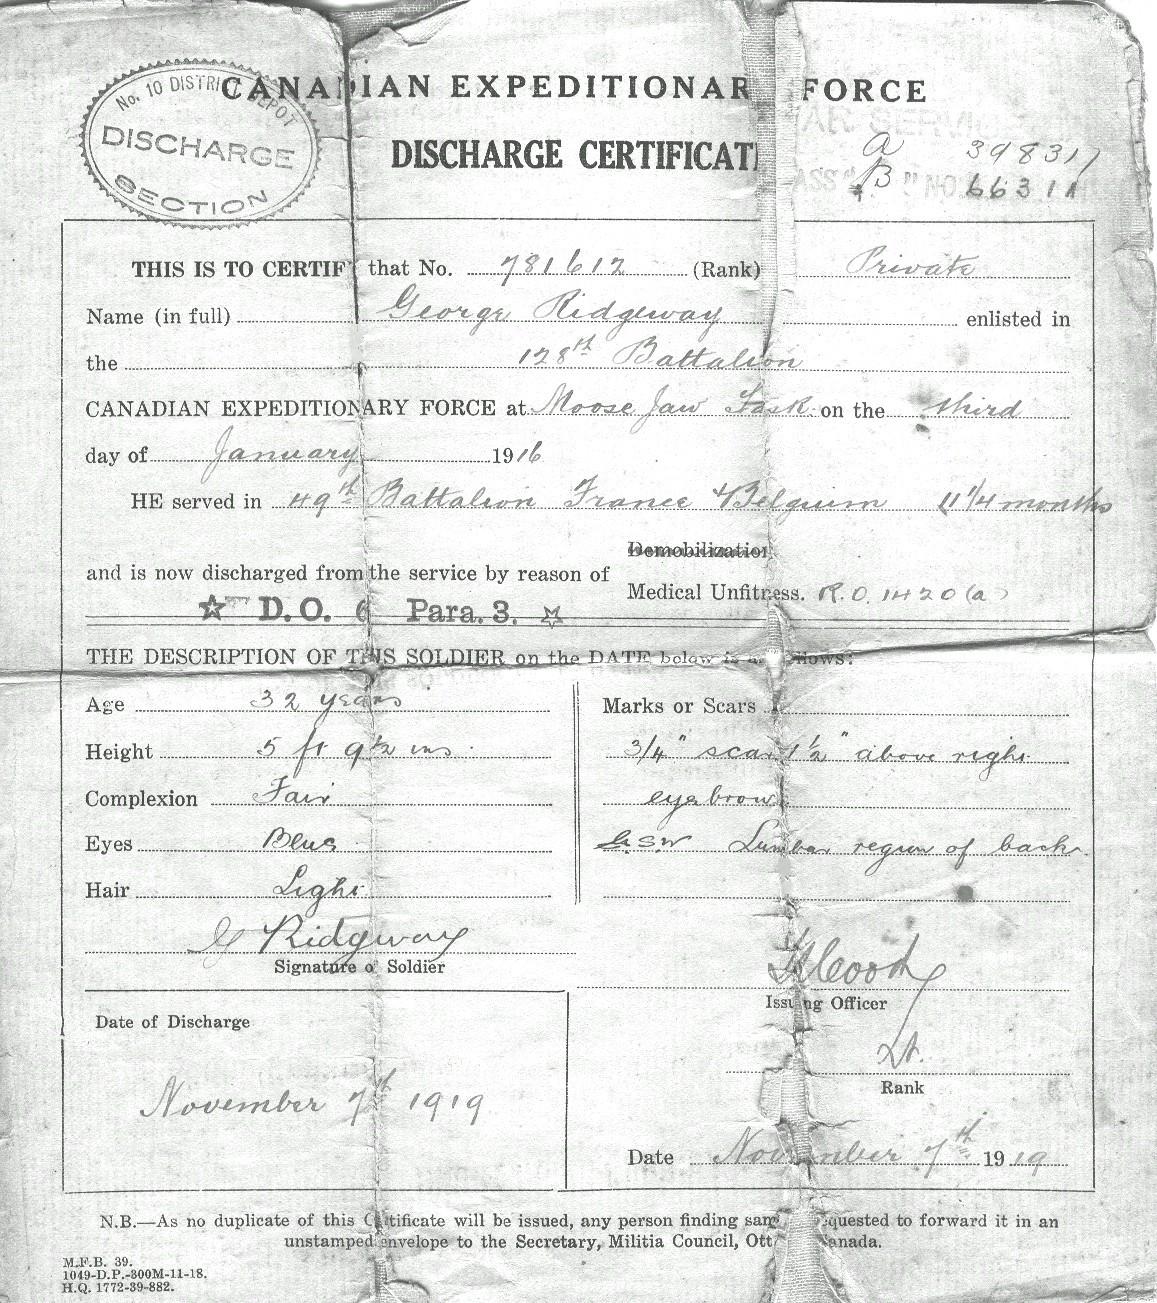 CANADIAN EXPEDITIONAR FORCE
No. 10 DISTRICT DEPOT
DISCHARGE
SECTION
DISCHARGE CERTIFICAT
WAR SERVICE
A 398311
CLASS "B" NO. 66311
THIS IS TO CERTIF that No. 781612 (Rank) Private
Name (in full) George Ridgeway enlisted in
the 128th Battalion
CANADIAN EXPEDITIONARY FORCE at Moose Jaw Sask on the third
day of January 1916
HE served in 49th Battalion France & Belgium 11 1/4 months
Demobilization
and is now discharged from the service by reason of
Medical Unfitness. R.O. 1420 (a)
☆ D.O. 6 Para. 3. ☆
THE DESCRIPTION OF THIS SOLDIER on the DATE below is as follows:
Age 32 years
Height 5 ft 9 1/2 ins.
Complexion Fair
Eyes Blue
Hair Light
Marks or Scars
3/4" scar 1 1/2" above right
eyebrow
G.S.W Lumbar region of back
G Ridgway
Signature of Soldier
Issuing Officer
Lt.
Rank
Date of Discharge
November 7th 1919
Date November 7th 1919
N.B.—As no duplicate of this Certificate will be issued, any person finding sam equested to forward it in an
unstamped envelope to the Secretary, Militia Council, Ott Canada.
M.F.B. 39.
1049-D.P.-300M-11-18.
H.Q. 1772-39-882.